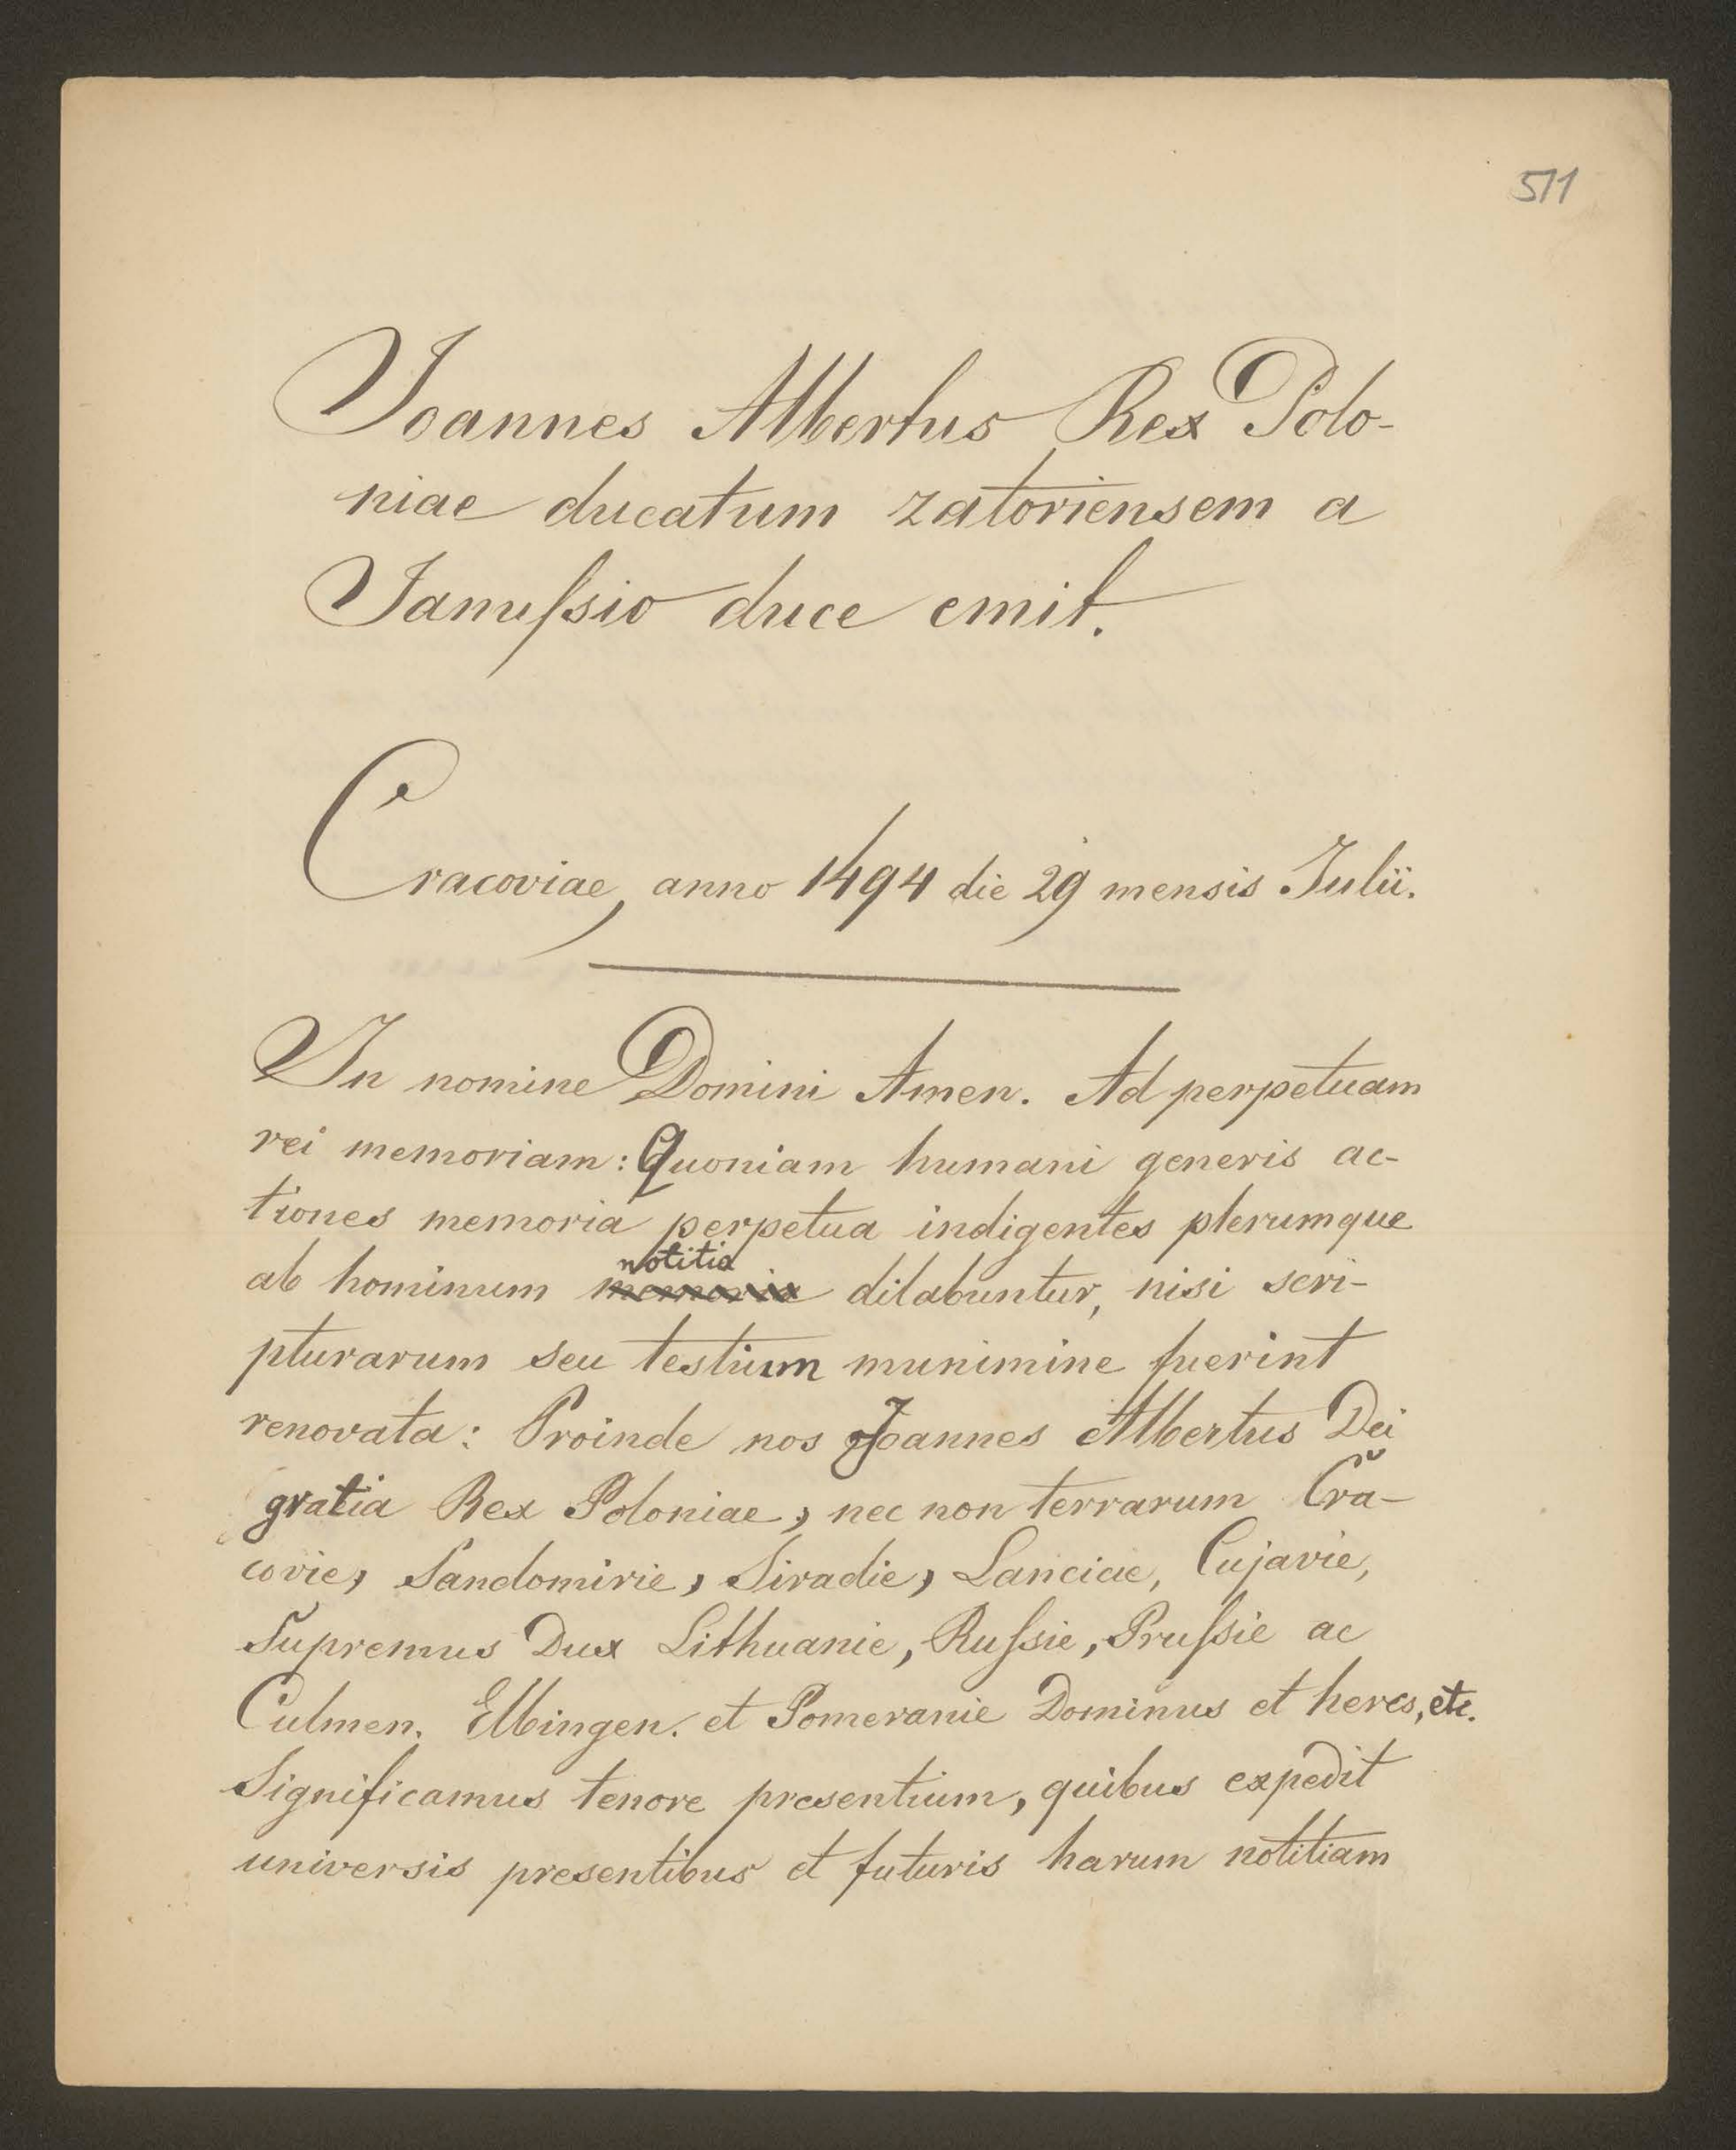 511
Joannes Albertus Rex Polo-
niae ducatum zatoriensem a
Januſsio duce emit.
Cracoviae, anno 1494 die 29 mensis Julii.
In nomine Domini Amen. Ad perpetuam
rei memoriam: Quoniam humani generis ac-
tiones memoria perpetua indigentes plerumque
notitia
ab hominum memoria dilabuntur, nisi scri-
pturarum seu testium munimine fuerint
renovata: Proinde nos Joannes Albertus Dei
gratia Rex Poloniae, nec non terrarum Cra-
covie, Sandomirie, Siradie, Lancicie, Cujavie,
Supremus Dux Lithuanie, Ruſsie, Pruſsie ac
Culmen. Elbingen. et Pomeranie Dominus et heres, etc.
Significamus tenore presentium, quibus expedit
universis presentibus et futuris harum notitiam